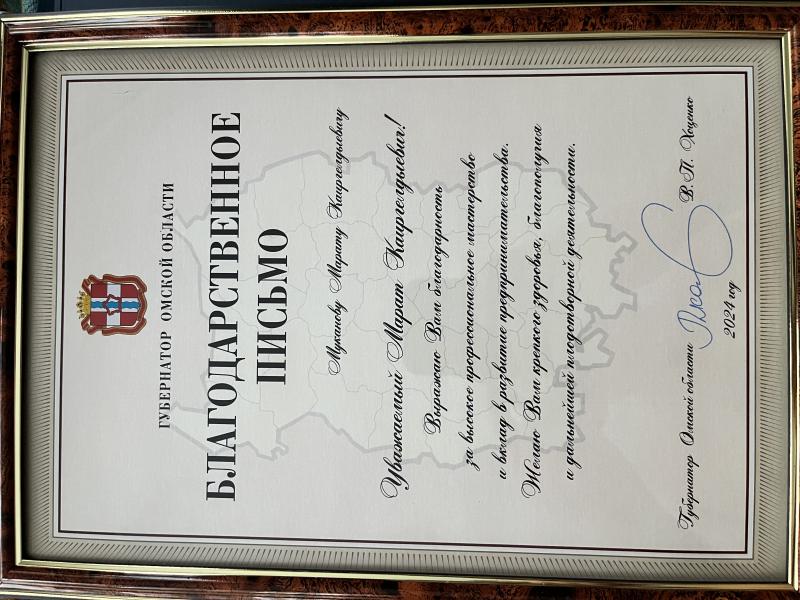 ГУБЕРНАТОР ОМСКОЙ ОБЛАСТИ
БЛАГОДАРСТВЕННОЕ
ПИСЬМО
Муканову Марату Каиргелдыевичу
Уважаемый Марат Каиргелдыевич!
Выражаю Вам благодарность
за высокое профессиональное мастерство
и вклад в развитие предпринимательства.
Желаю Вам крепкого здоровья, благополучия
и дальнейшей плодотворной деятельности.
Губернатор Омской области В.П. Хоценко
2024 год